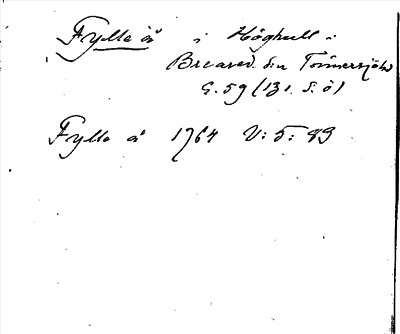 Fylle å i Höghult i
Breared s:n Tönnersjö hd
G. 59 (131. S. ö)
Fylle å 1764 V: 5: 83